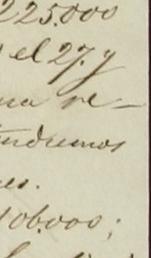 225.000
el 27. y
na re-
tendremos
es.
106.000;